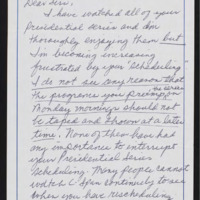 Dear Sirs.
I have watched all of your
Presidential series and am
thoroughly enjoying them but
I'm becoming increasing
frustrated by your "scheduling"
I do not see any reason that
the programs you preempt on
Monday mornings should not
be taped and shown at a later
time. None of them have had
any importance to interrupt
your Presidential Series
scheduling. Many people cannot
watch C Span continuely to see
when you have rescheduling